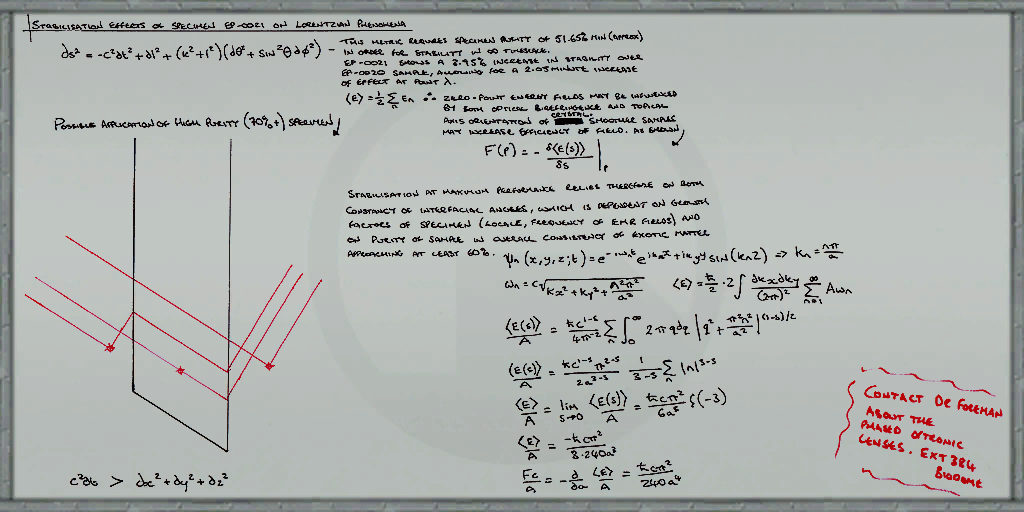 STABILISATION EFFECTS OF SPECIMEN EP-0021 ON LORENTZIAN PHENOMENA
ds² = -c²dt² + dl² + (k² + l²)(dθ² + sin²θ dφ²) - THIS METRIC REQUIRES SPECIMEN PURITY OF 51.65% MIN (APPROX)
IN ORDER FOR STABILITY IN ∞ TIMESCALE.
EP-0021 SHOWS A 3.95% INCREASE IN STABILITY OVER
EP-0020 SAMPLE, ALLOWING FOR A 2.03 MINUTE INCREASE
OF EFFECT AT POINT λ.
⟨E⟩ = ½ Σn En ∴ ZERO-POINT ENERGY FIELDS MAY BE INFLUENCED
BY BOTH OPTICAL BIREFRINGENCE AND TOPICAL
AXIS ORIENTATION OF CRYSTAL. SMOOTHER SAMPLES
MAY INCREASE EFFICIENCY OF FIELD. AS SHOWN
POSSIBLE APPLICATION OF HIGH PURITY (70%+) SPECIMEN
F(p) = - δ⟨E(s)⟩/δs |p
STABILISATION AT MAXIMUM PERFORMANCE RELIES THEREFORE ON BOTH
CONSTANCY OF INTERFACIAL ANGLES, WHICH IS DEPENDENT ON GROWTH
FACTORS OF SPECIMEN (LOCALE, FREQUENCY OF EMR FIELDS) AND
ON PURITY OF SAMPLE IN OVERALL CONSISTENCY OF EXOTIC MATTER
APPROACHING AT LEAST 60%.
ψn(x,y,z;t) = e^-iωnt e^ikxx+ikyy sin(knz) ⇒ kn = nπ/a
ωn = c√(kx² + ky² + n²π²/a²) ⟨E⟩ = ħ/2 · 2∫ dkxdky/(2π)² Σ(n=1 to ∞) Aωn
⟨E(s)⟩/A = ħc^1-s/4π^-2 Σn ∫₀^∞ 2πqdq |q² + π²n²/a²|^(1-s)/2
⟨E(s)⟩/A = ħc^1-s π^2-s/2a^3-s 1/3-s Σn |n|^3-s
⟨E⟩/A = lim s→0 ⟨E(s)⟩/A = ħcπ²/6a³ ζ(-3)
⟨E⟩/A = -ħcπ²/3·240a³
Fc/A = - d/da ⟨E⟩/A = ħcπ²/240a⁴
c²dt > dx² + dy² + dz²
CONTACT DR FOREMAN
ABOUT THE
PHASED OPTRONIC
LENSES. EXT 384
BIODOME